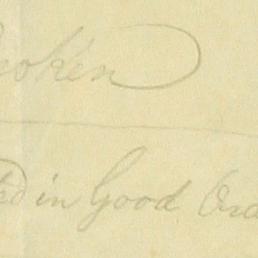 roken
ed in Good Ord